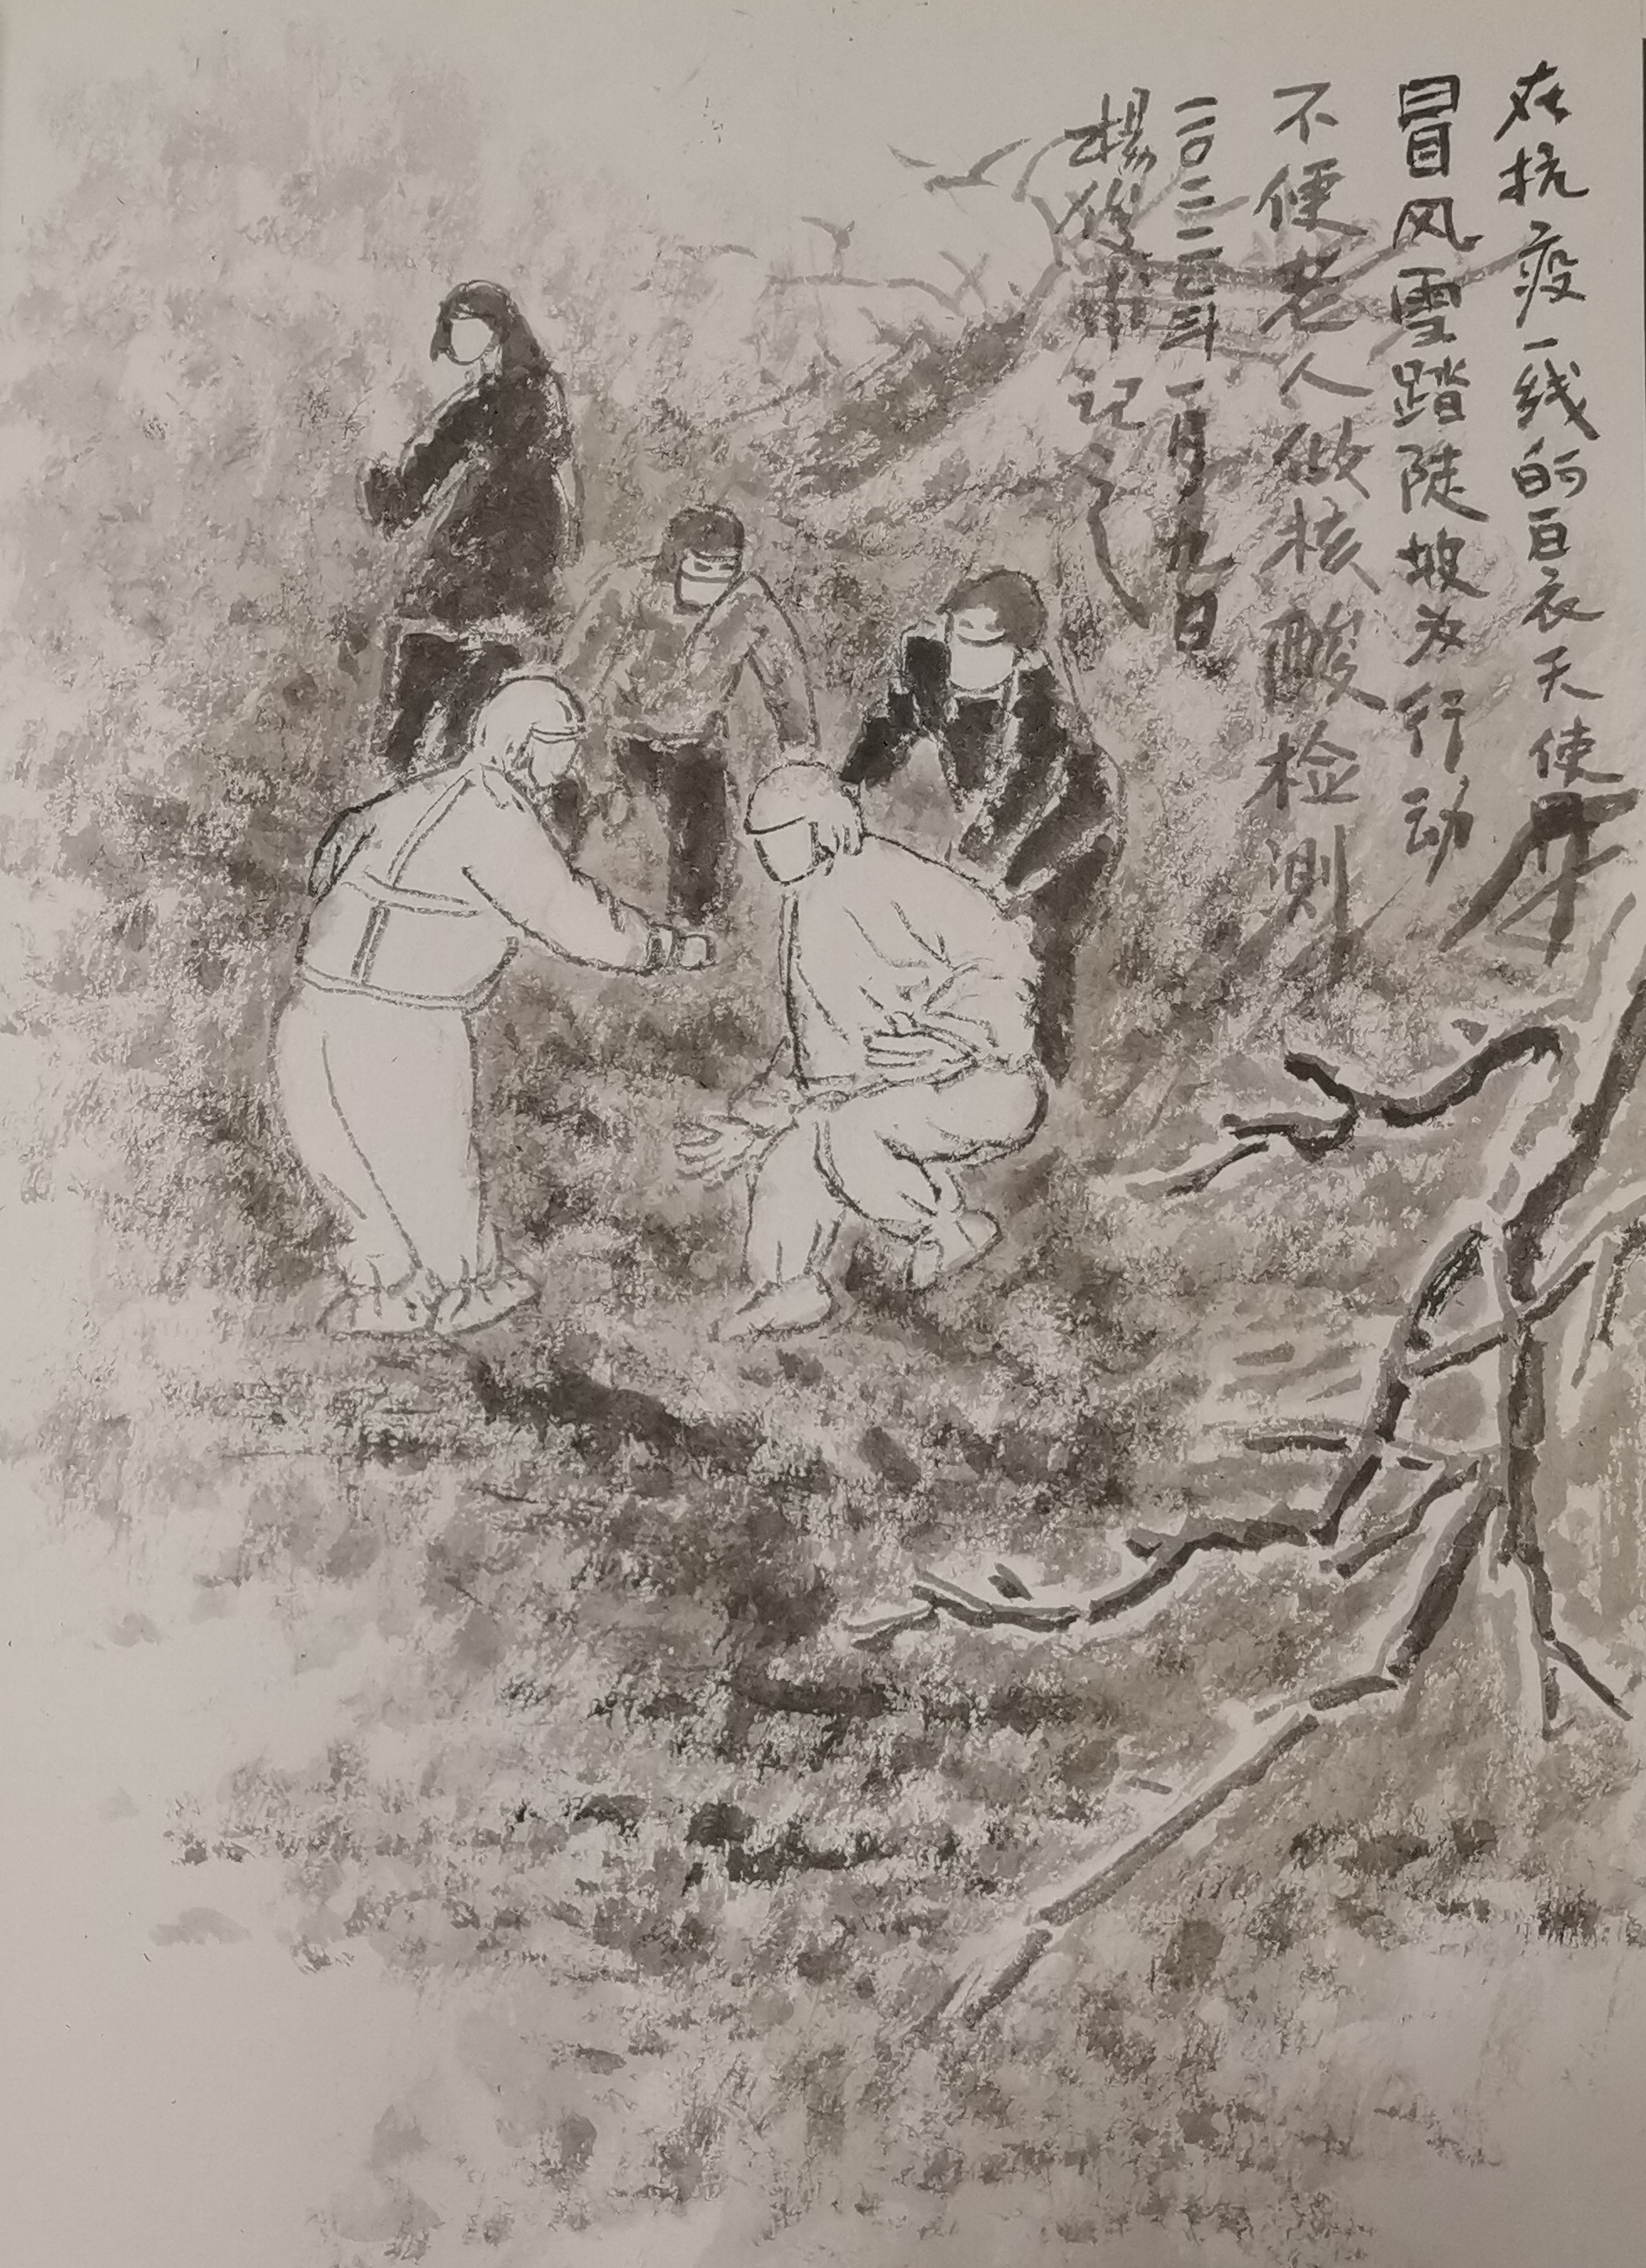 在抗疫一线的白衣天使
冒风雪踏陡坡为行动
不便老人做核酸检测
二〇二二年一月九日
楊俊甫记之